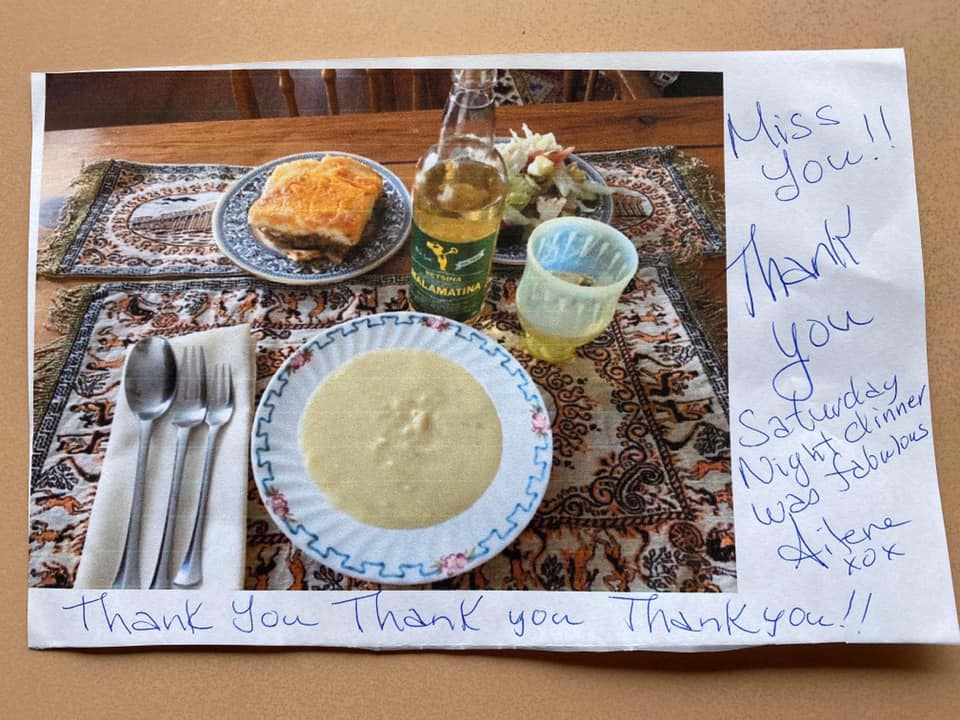 RETSINA
MALAMATINA
Miss
You!!
Thank
you
Saturday
Night dinner
was fabulous
Ailene
xox
Thank You Thank you Thank you!!